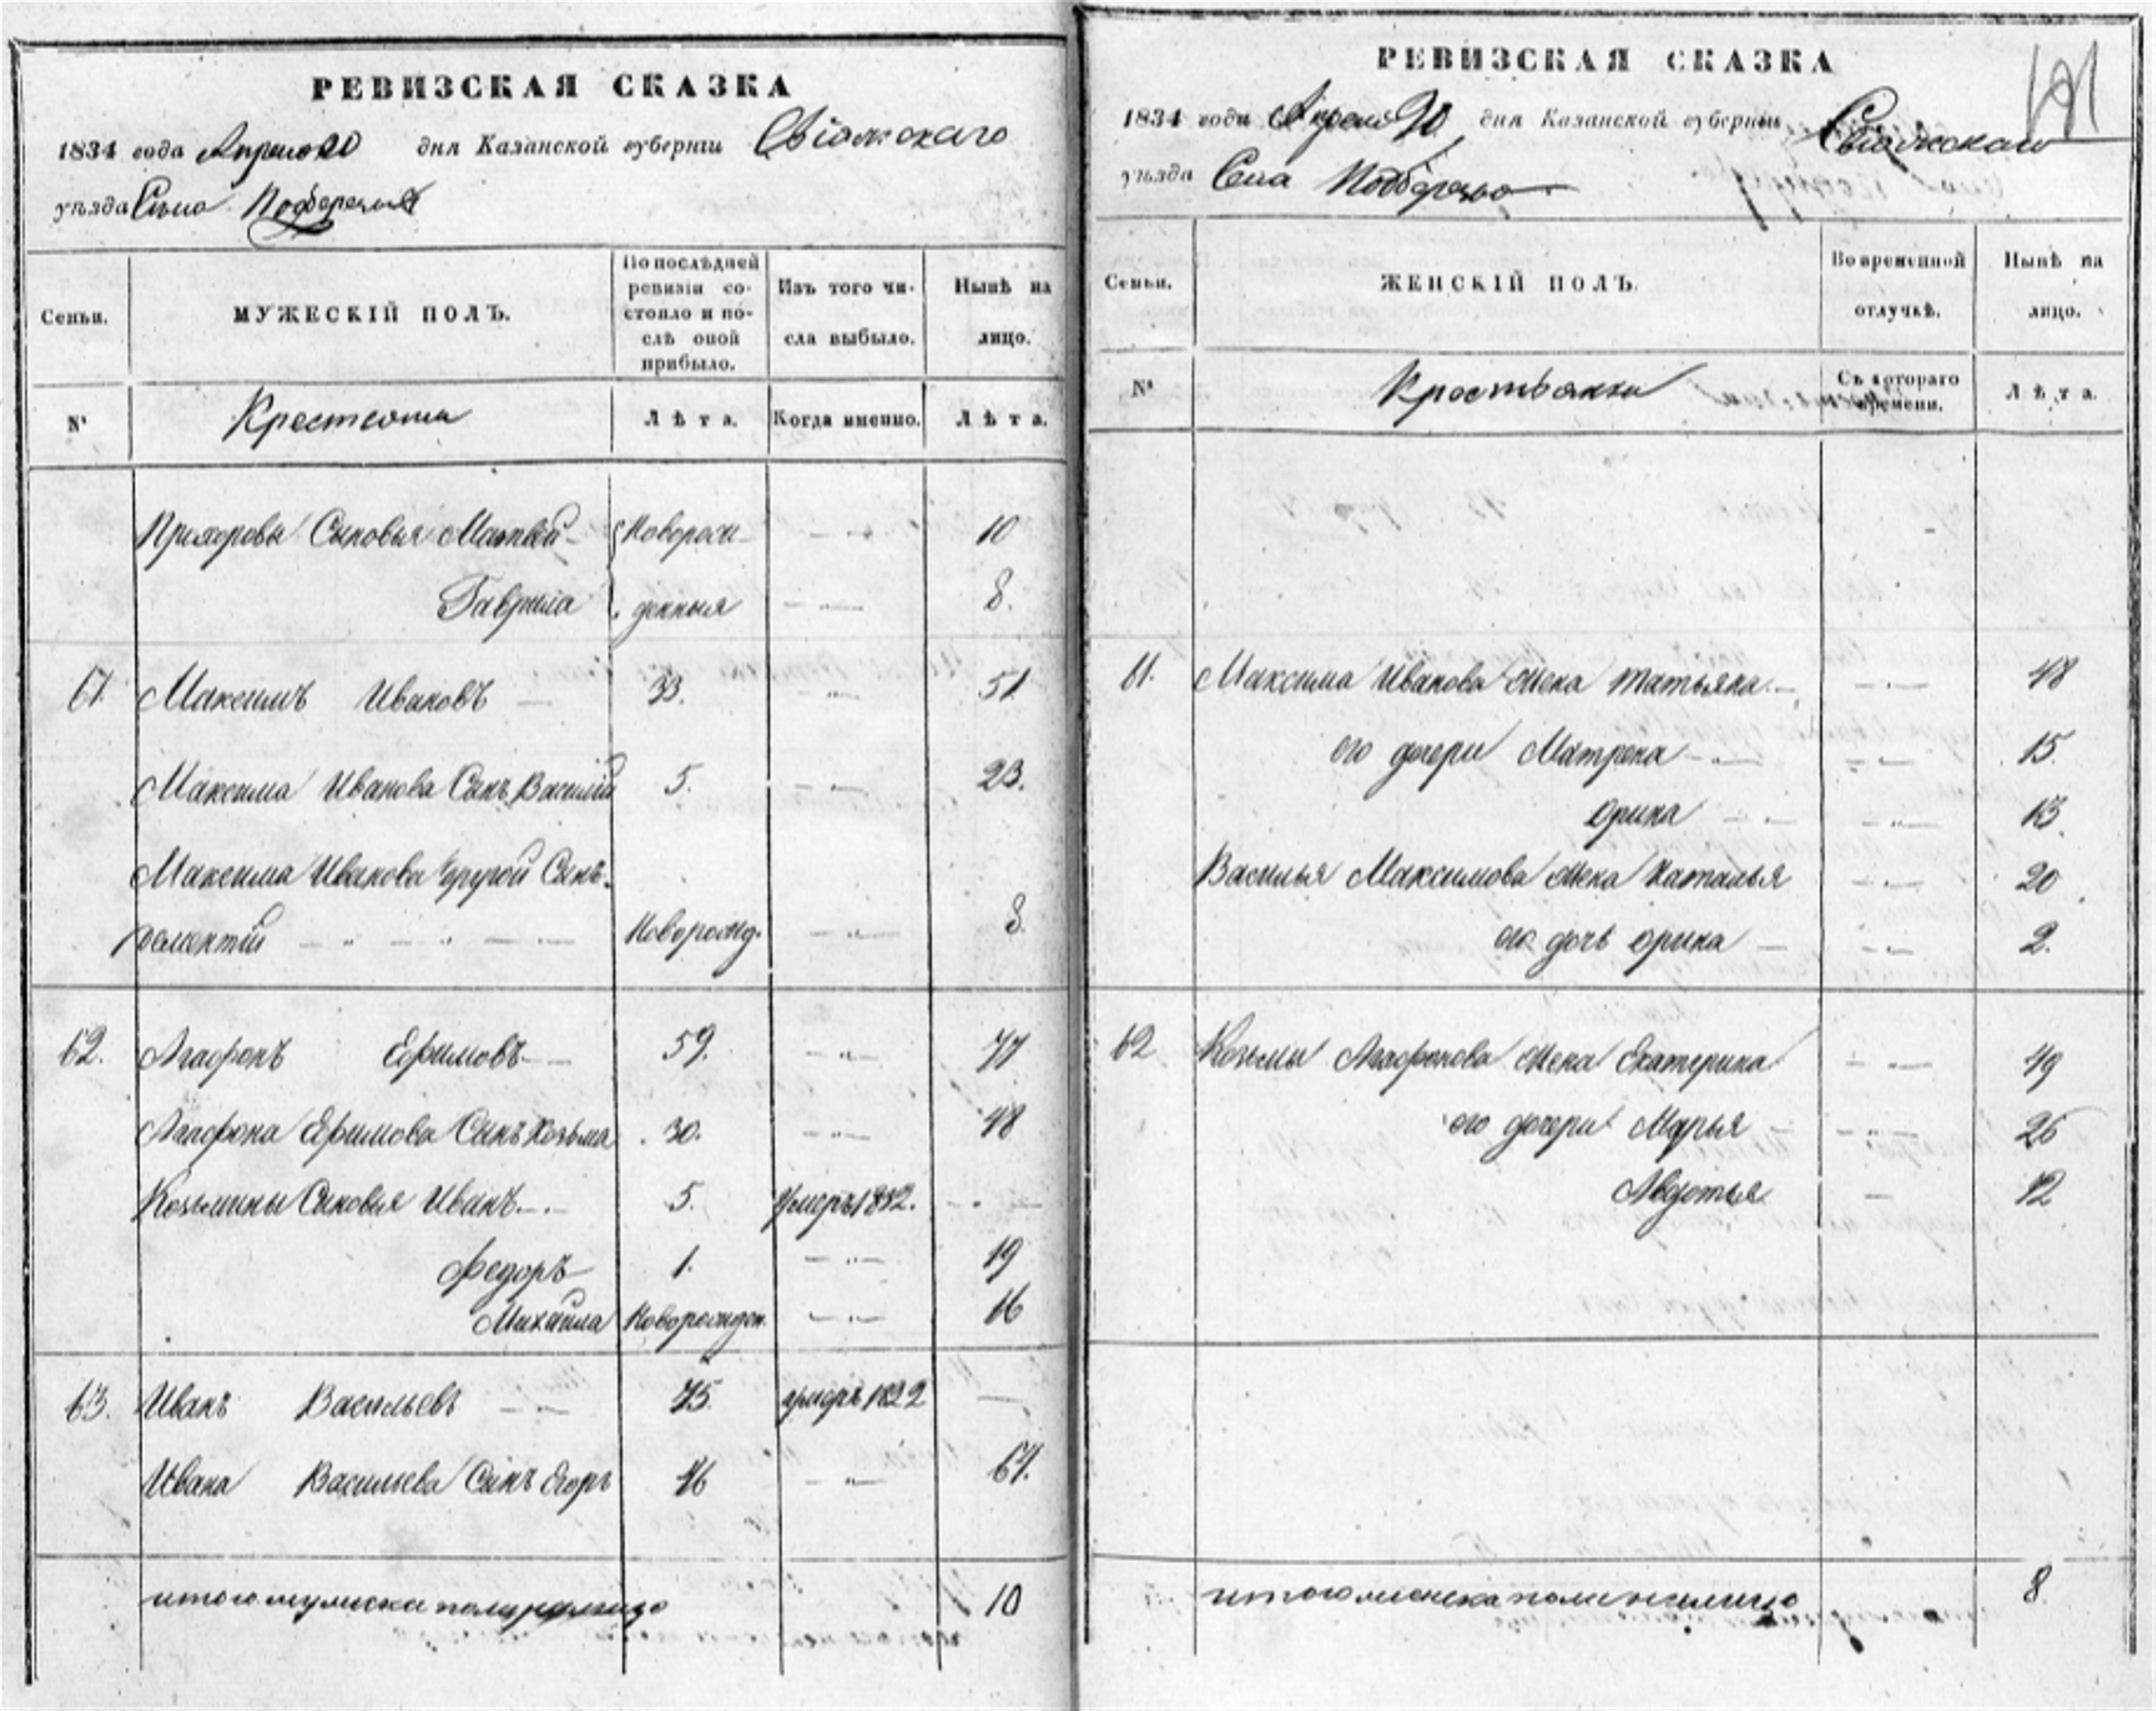 РЕВИЗСКАЯ СКАЗКА
1834 года Апреля 20 дня Казанской губернии Свіяжскаго
уѣзда Села Подберезья
Семьи.
МУЖЕСКІЙ ПОЛЪ.
По послѣдней ревизіи со-
стояло и по-
слѣ оной
прибыло.
Изъ того чи-
сла выбыло.
Нынѣ на
лицо.
№
Крестьяне
Лѣта.
Когда именно.
Лѣта.
Прохоровы Сыновья Матвей Новорож- 10
Гаврила денныя 8.
61. Максимъ Ивановъ 33. 51
Максима Иванова Сынъ Василій 5. 23.
Максима Иванова другой Сынъ
Новорожд. 8
62. Агафонъ Ефимовъ 59. 77
Агафона Ефимова Сынъ Козьма 30. 48
Козьмины Сыновья Иванъ 5. умеръ 1832.
Федоръ 1. 19
Михайла Новорожден. 16
63. Иванъ Васильевъ 75. умеръ 1822
Ивана Васильева Сынъ Егоръ 46 64.
итого мужеска пола налицо 10
РЕВИЗСКАЯ СКАЗКА
1834 года Апреля 20 дня Казанской губерніи Свіяжскаго
уѣзда Села Подберезья
Семьи.
ЖЕНСКІЙ ПОЛЪ.
Во временной
отлучкѣ.
Нынѣ на
лицо.
№
Крестьянки
Съ котораго
времени.
Лѣта.
61. Максима Иванова Жена Татьяна 48
его дочери Матрена 15.
Орина 13.
Василья Максимова Жена Наталья 20
его дочь Орина 2.
62 Козьмы Агафонова Жена Екатерина 49
его дочери Марья 26
Авдотья 12
итого женска пола налицо 8